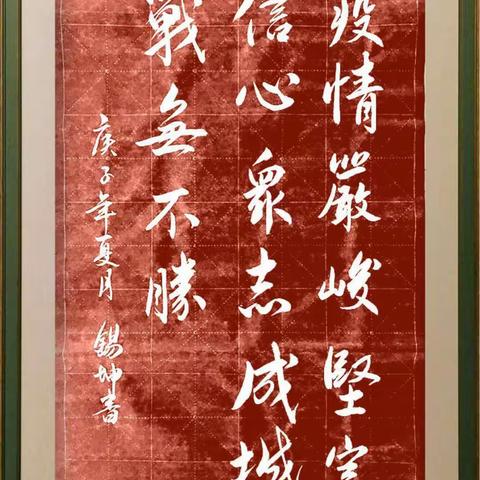 疫情嚴峻堅定
信心眾志成城
戰無不勝
庚子年夏月 錫坤書